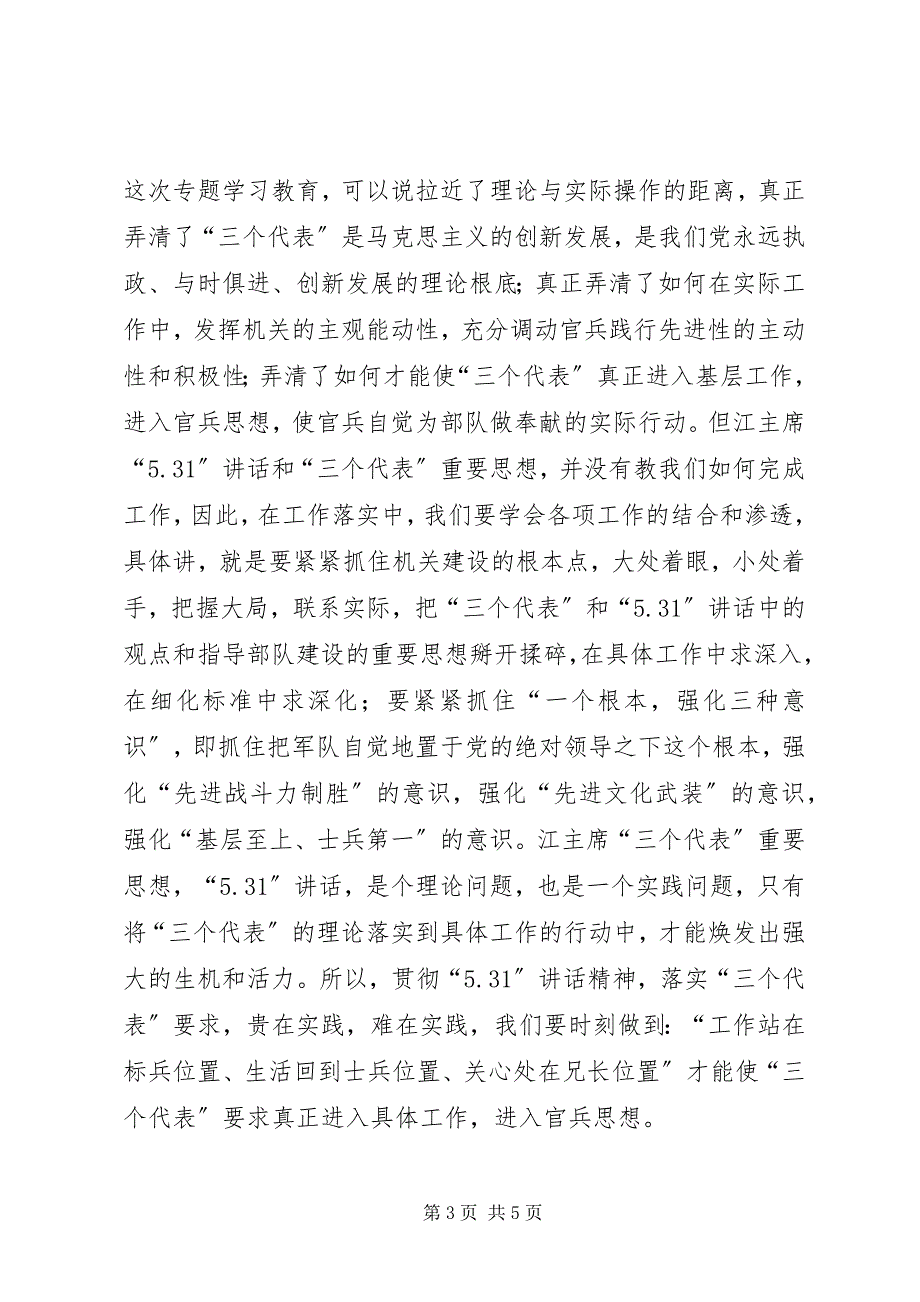 这次专题学习教育，可以说拉近了理论与实际操作的距离，真正
弄清了“三个代表〞是马克思主义的创新发展，是我们党永远执
政、与时俱进、创新发展的理论根底；真正弄清了如何在实际工
作中，发挥机关的主观能动性，充分调动官兵践行先进性的主动
性和积极性；弄清了如何才能使“三个代表〞真正进入基层工作，
进入官兵思想，使官兵自觉为部队做奉献的实际行动。但江主席
“5.31〞讲话和“三个代表〞重要思想，并没有教我们如何完成
工作，因此，在工作落实中，我们要学会各项工作的结合和渗透，
具体讲，就是要紧紧抓住机关建设的根本点，大处着眼，小处着
手，把握大局，联系实际，把“三个代表〞和“5.31〞讲话中的
观点和指导部队建设的重要思想掰开揉碎，在具体工作中求深入，
在细化标准中求深化；要紧紧抓住“一个根本，强化三种意
识〞，即抓住把军队自觉地置于党的绝对领导之下这个根本，强
化“先进战斗力制胜〞的意识，强化“先进文化武装〞的意识，
强化“基层至上、士兵第一〞的意识。江主席“三个代表〞重要
思想，“5.31〞讲话，是个理论问题，也是一个实践问题，只有
将“三个代表〞的理论落实到具体工作的行动中，才能焕发出强
大的生机和活力。所以，贯彻“5.31〞讲话精神，落实“三个代
表〞要求，贵在实践，难在实践，我们要时刻做到：“工作站在
标兵位置、生活回到士兵位置、关心处在兄长位置〞才能使“三
个代表〞要求真正进入具体工作，进入官兵思想。
第 3 页 共 5 页